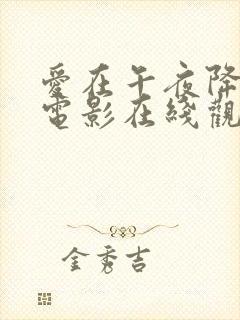 愛在午夜降
電影在綫觀
金秀吉